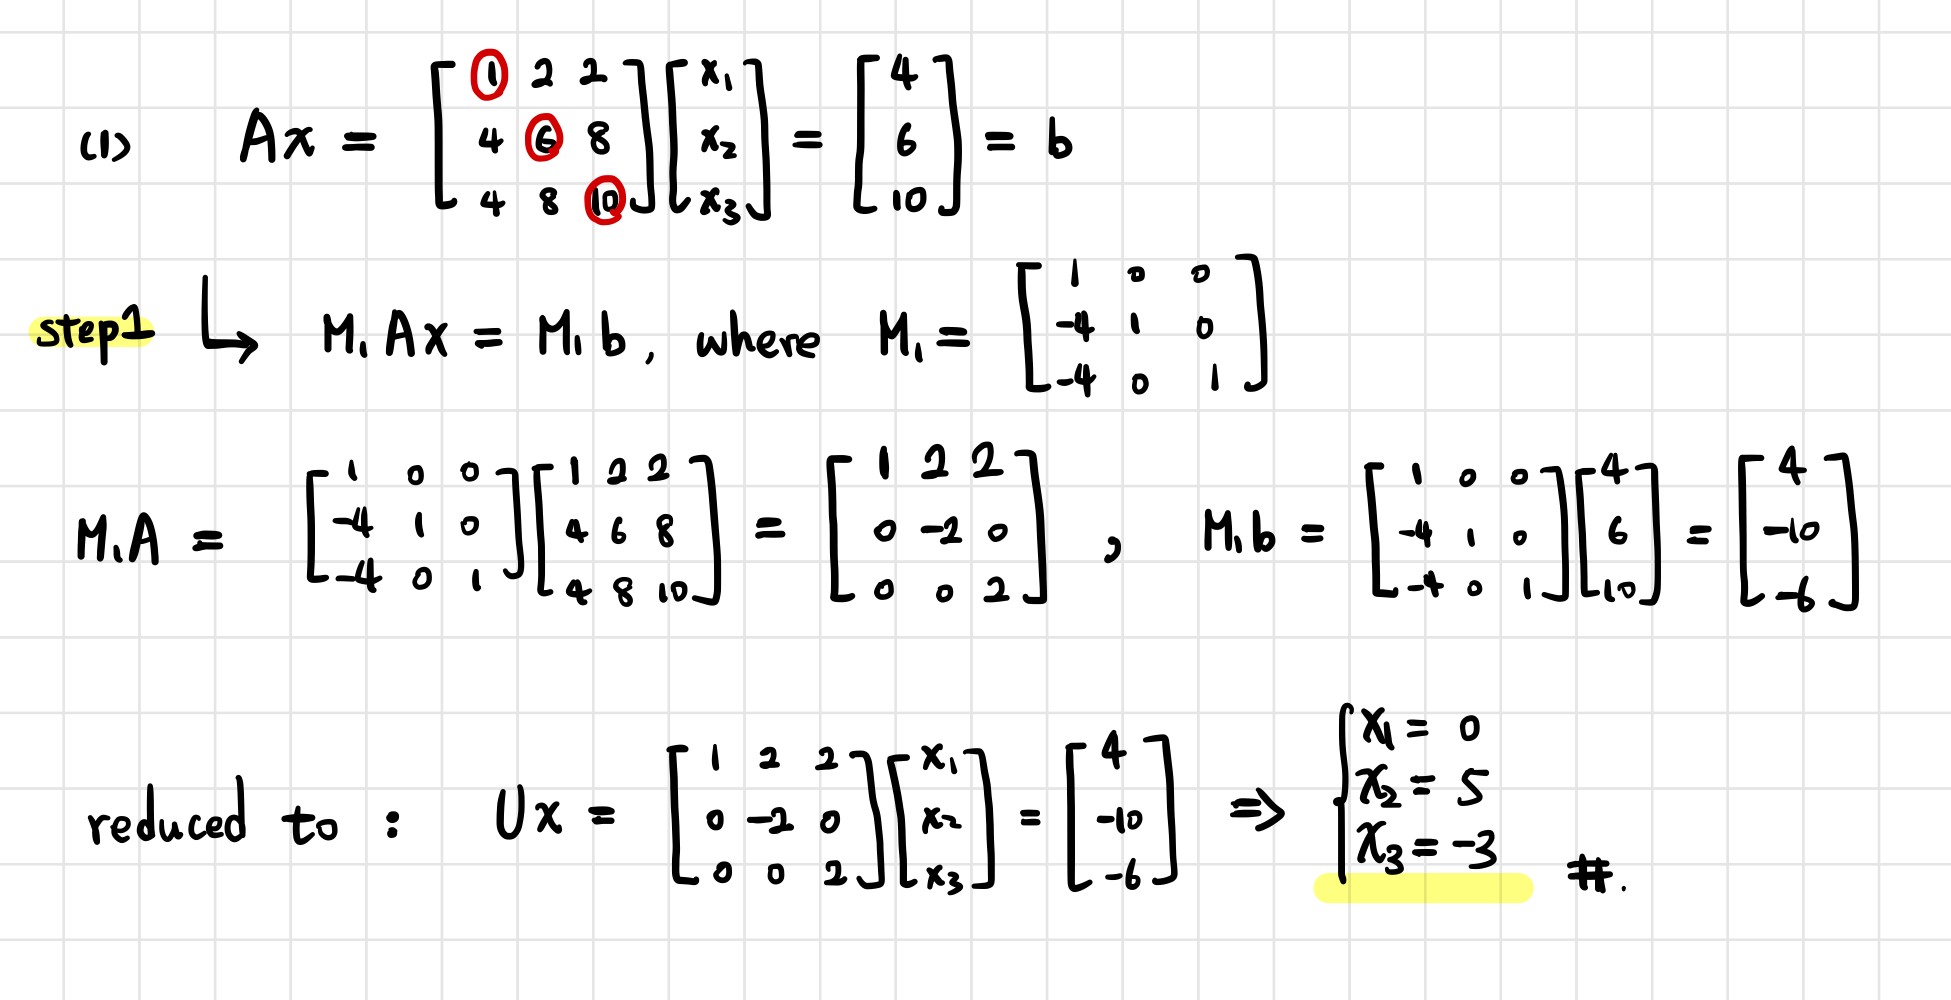 (1) Ax = [1 2 2; 4 6 8; 4 8 10] [x₁; x₂; x₃] = [4; 6; 10] = b
step1 ↳ M₁Ax = M₁b, where M₁ = [1 0 0; -4 1 0; -4 0 1]
M₁A = [1 0 0; -4 1 0; -4 0 1] [1 2 2; 4 6 8; 4 8 10] = [1 2 2; 0 -2 0; 0 0 2] , M₁b = [1 0 0; -4 1 0; -4 0 1] [4; 6; 10] = [4; -10; -6]
reduced to : Ux = [1 2 2; 0 -2 0; 0 0 2] [x₁; x₂; x₃] = [4; -10; -6] ⇒ { x₁ = 0; x₂ = 5; x₃ = -3 #.